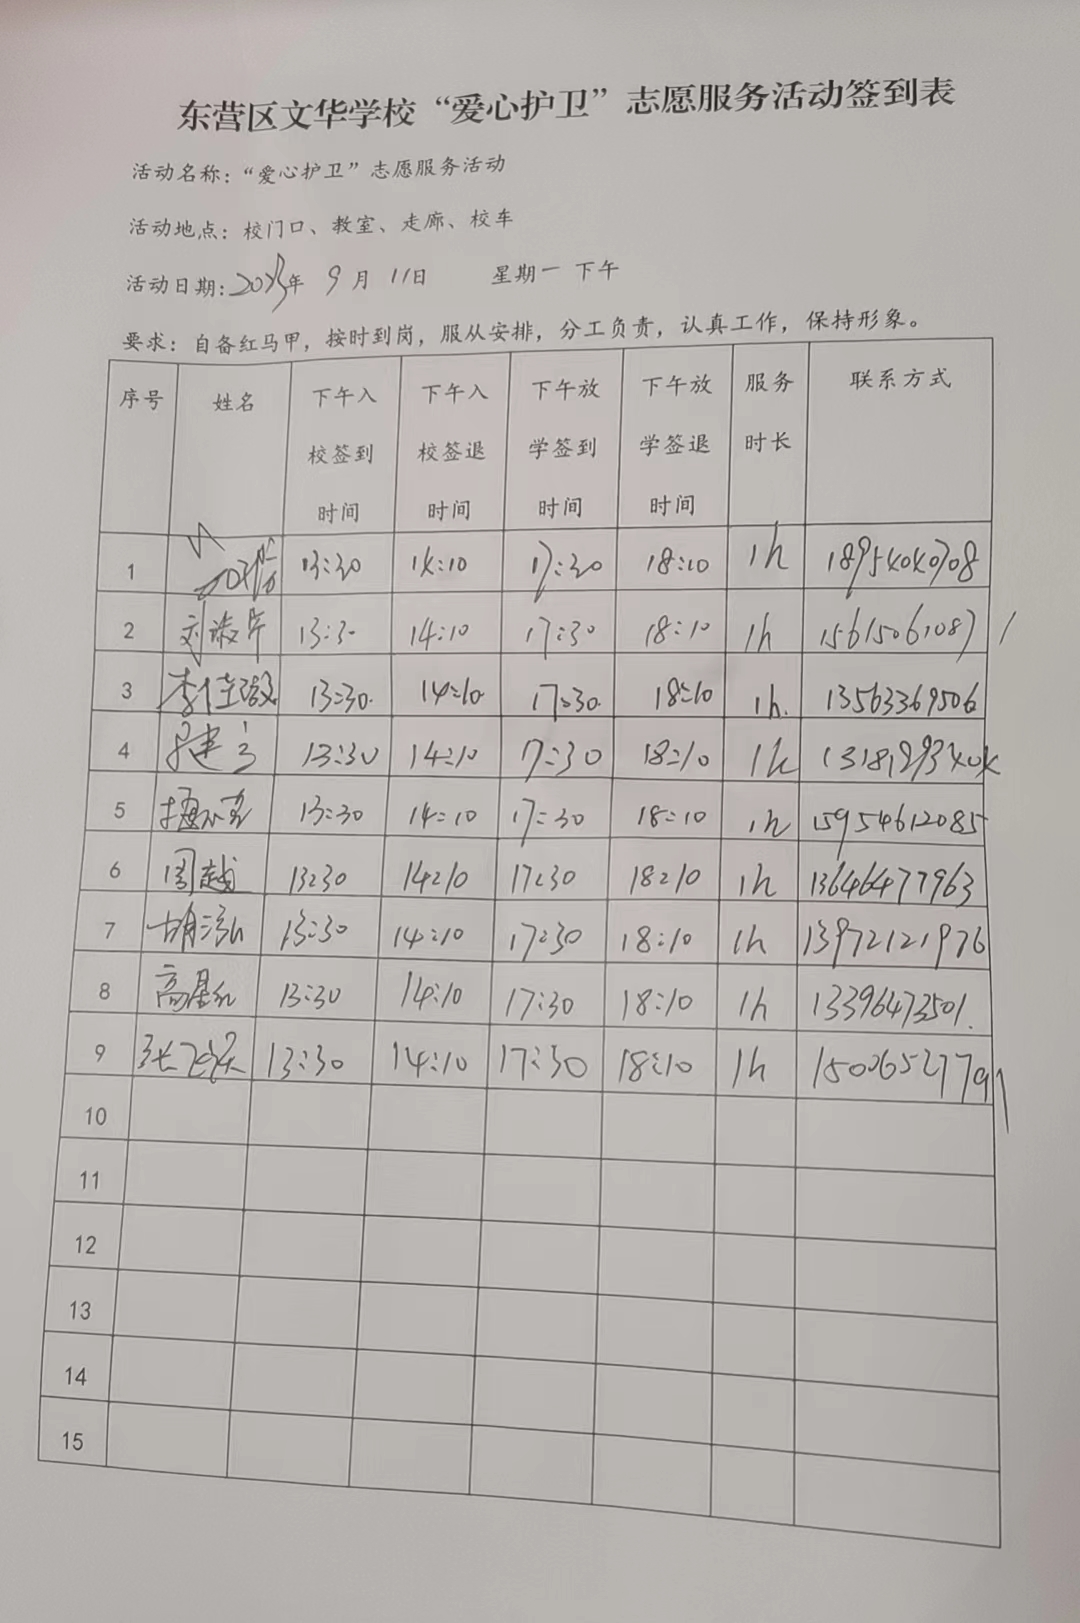 东营区文华学校“爱心护卫”志愿服务活动签到表
活动名称：“爱心护卫”志愿服务活动
活动地点：校门口、教室、走廊、校车
活动日期：2023年 9月 11日 星期一 下午
要求：自备红马甲，按时到岗，服从安排，分工负责，认真工作，保持形象。
序号 姓名 下午入校签到时间 下午入校签退时间 下午放学签到时间 下午放学签退时间 服务时长 联系方式
1 13:30 14:10 17:30 18:10 1h 18954040708
2 刘淑华 13:30 14:10 17:30 18:10 1h 15615061087
3 13:30 14:10 17:30 18:10 1h 13563369506
4 13:30 14:10 17:30 18:10 1h
5 13:30 14:10 17:30 18:10 1h 15954612085
6 周越 13:30 14:10 17:30 18:10 1h 13646477963
7 胡泓 13:30 14:10 17:30 18:10 1h 13972121976
8 高星红 13:30 14:10 17:30 18:10 1h 13396473501
9 13:30 14:10 17:30 18:10 1h 15006527791
10
11
12
13
14
15